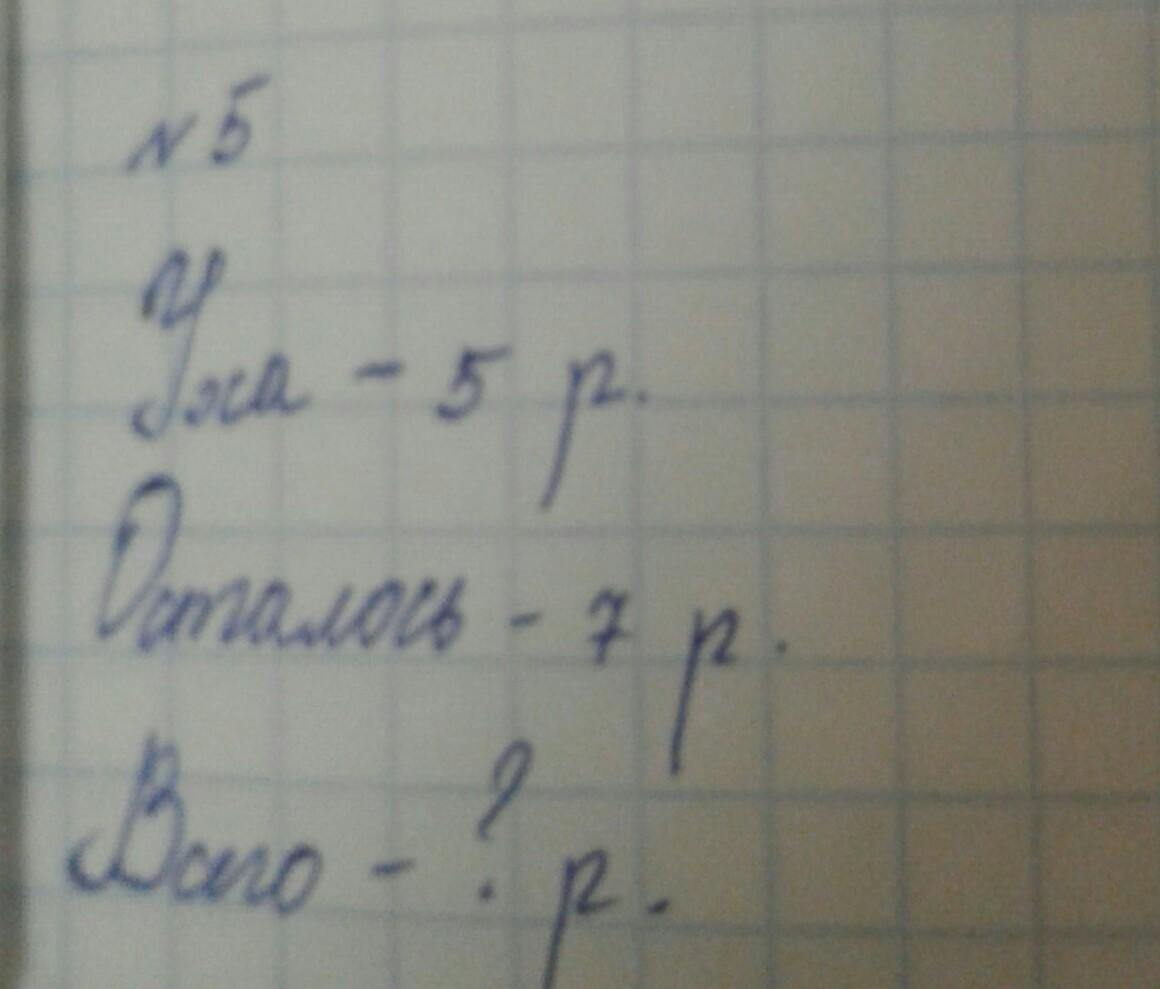 №5
Уха - 5 р.
Осталось - 7 р.
Всего - ? р.